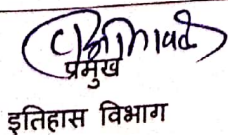 प्रमुख
इतिहास विभाग